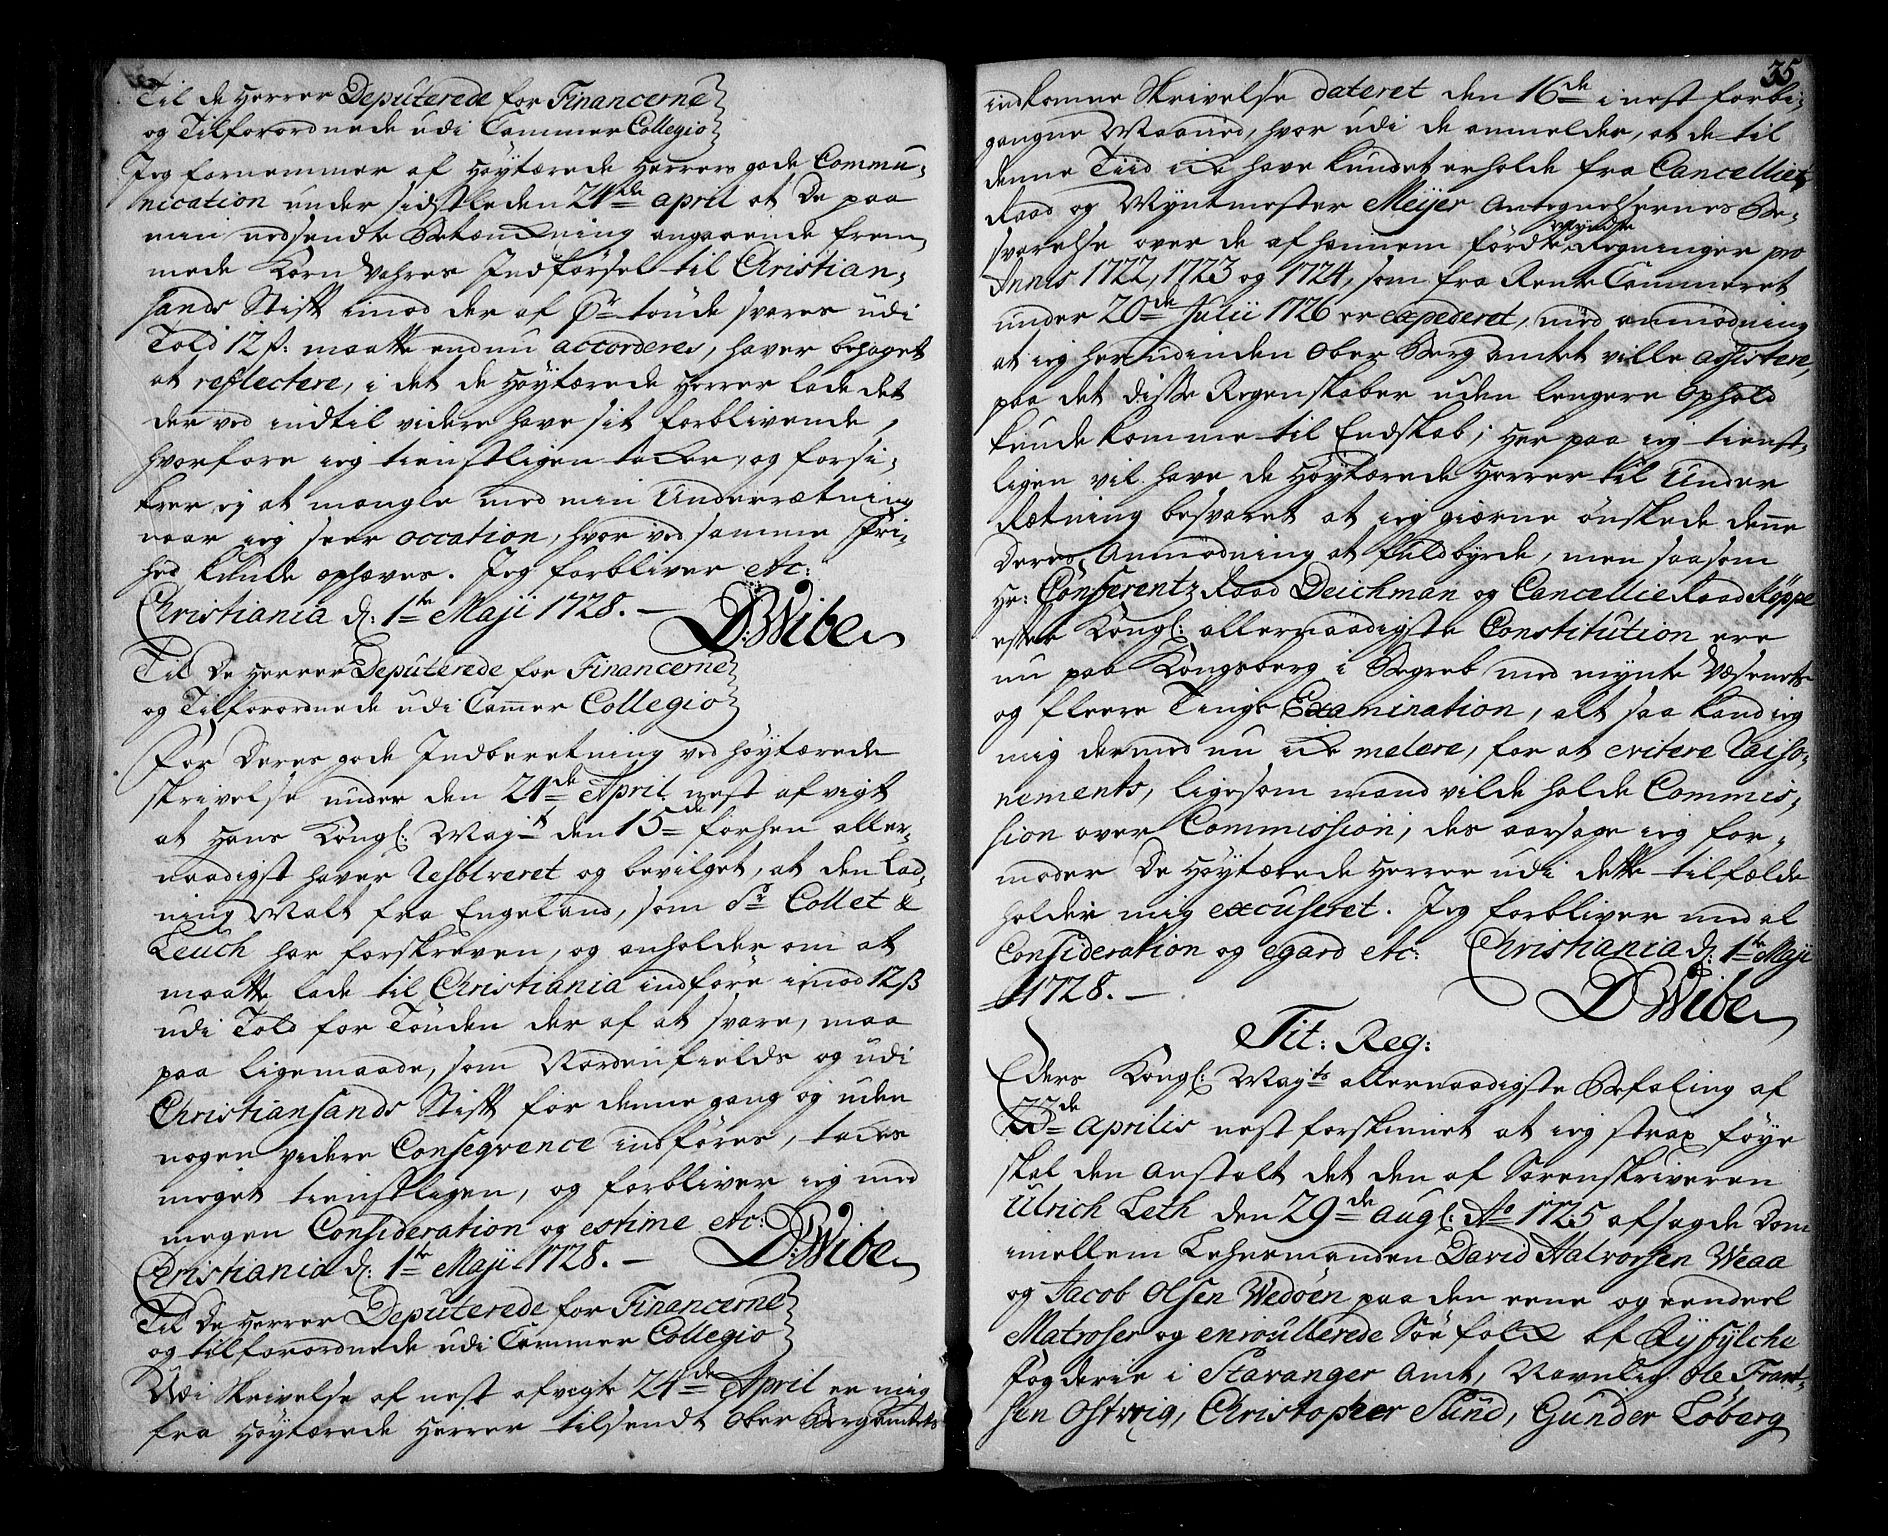 Til de Herrer Deputerede for Financerne
og Tilforordnede udi Cammer Collegio
Jeg fornemmer af Høytærede Herrers gode Commu-
nication under sidstleden 24de april at De paa
min nedsendte Betænckning angaaende frem-
mede Korn Vahres Indførsel til Christian-
sands Stift imod der af Pr tønde svares udi
Told 12 s: maatte endnu accorderes, haver behaget
at reflectere, i det de Høytærede Herrer lade det
der ved indtil videre have sit forblivende,
hvorfore ieg tienstligen tacker, og forsi-
krer ej at mangle med min Underrætning
naar ieg seer occation, hvor ved samme Fri-
hed kunde ophæves. Jeg forbliver etc:
Christiania d: 1te Maji 1728. —
D: Wibe
Til De Herrer Deputerede for Financerne
og Tilforordnede udi Camer Collegio
For Deres gode Indberetning ved høytærede
skrivelse under den 24de April nest afvigt
at Hans Kongl: Majts den 15de forhen aller-
naadigst haver Resolveret og bevilget, at den Lad-
ning Malt fra Engeland, som Sr Collet &
Leuch har forskreven, og anholder om at
maatte lade til Christiania indføre imod 12 s
udi Told for Tønden der af at svare, maa
paa ligemaade, som Nordenfields og udi
Christiansands Stift for denne gang og uden
nogen videre Conseqvence indføres, tackes
meget tienstligen, og forbliver ieg med
megen Consideration og estime etc:
Christiania d: 1te Maji 1728. —
D: Wibe
Til De Herrer Deputerede for Financerne
og tilforordnede udi Cammer Collegio
Udi Skrivelse af nest afvigte 24de April er mig
fra Høytærede Herrer tilsendt Ober Bergamtets
35
indkomne Skrivelse dateret den 16de i nest forbi-
gangne Maaned, hvor udi de anmelder, at de til
denne Tiid icke have kundet erholde fra Cancellie-
Raad og Myntmester Meijer Antegnelsernes Be-
svarelse over de af hannem førdte Myndte Regninger pro
Annis 1722, 1723 og 1724, som fra Rente Cammeret
under 20de Julii 1726 er expederet, med anmodning
at ieg her udinden Ober Berg Amtet ville assistere,
paa det disse Regenskaber uden lengere Ophold
kunde komme til Endskab; Her paa ieg tienst-
ligen vil have de Høytærede Herrer til Under
Rætning besvaret at ieg giærne ønskede denne
Deres Anmodning at fuldbyrde, men saasom
Hr: Conferentz Raad Deichman og Cancellie Raad Køppe
efter Kongl: allernaadigste Constitution ere
nu paa Kongsberg i Begreb med mynte Væsenets
og fleere Tings Examination, alt saa kand ieg
mig dermed nu icke melere, for at evitere Raiso-
nements, ligesom mand vilde holde Commis-
sion over Commission; des aarsage ieg for-
moder De Høytærede Herrer udi dette tilfælde
holder mig excuseret. Jeg forbliver med al
Consideration og egard etc: Christiania d: 1te Maji
1728. —
D Wibe
Tit: Reg:
Eders Kongl: Majts allernaadigste Befaling af
23de aprilis nest forskinnet at ieg strax føye
skal den Anstalt det den af Sorenskriveren
Ulrich Leth den 29de aug: Ao 1725 afsagde Dom
imellem Lehnsmanden David Halvorsen Weaa
og Jacob Olsen Wedøen paa den eene og eendeel
Matroser og enroullerede Søe folck af Ryfylche
Fogderie i Stavanger Amt, Navnlig Ole Frant-
sen Ostvrig, Christopher Sund, Gunder Løberg